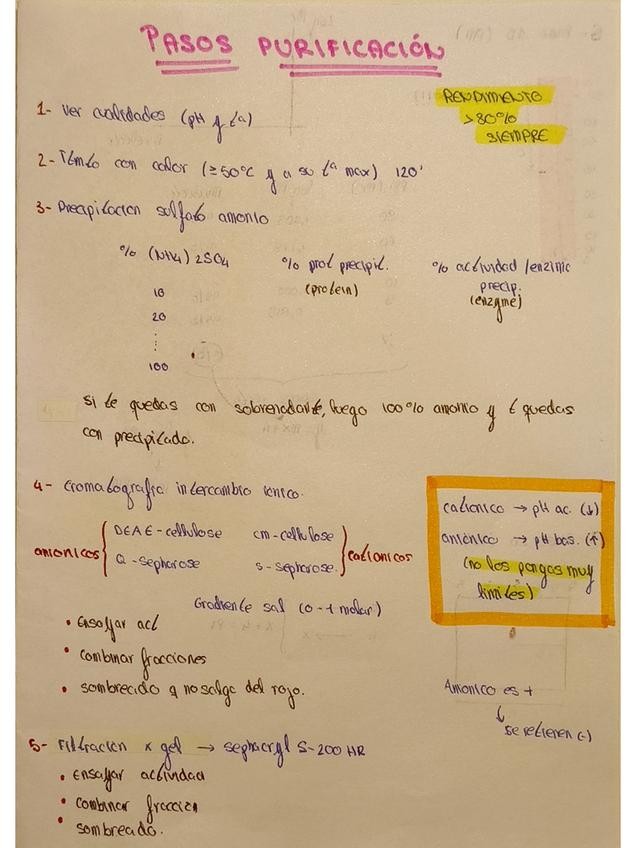 PASOS PURIFICACIÓN
RENDIMIENTO
>80%
SIEMPRE
1- Ver cualidades (pH y tª)
2- Tªmto con calor (≥50ºC y a su tª max) 120'
3- Precipitacion sulfato amonio
% (NH4)2SO4 % prot precipit. (protein) % actividad enzimic precip. (enzyme)
10
20
100
si te quedas con sobrenadante, luego 100% amonio y t quedas
con precipitado.
4- Cromatografia intercambio ionico.
anionicos { DEAE-cellulose cm-cellulose } cationicos
Q-sepharose s-sepharose.
Gradiente sal (0-1 molar)
• Ensayar act
• combinar fracciones
• sombrecido q no salga del rojo.
cationico → pH ac. (↓)
anionico → pH bas. (↑)
(no los pongas muy
limites)
Anionico es +
↓
se retienen (-)
5- Filtracion x gel → sephacryl S-200 HR
• ensayar actividad
• combinar fraccion
• sombreado.